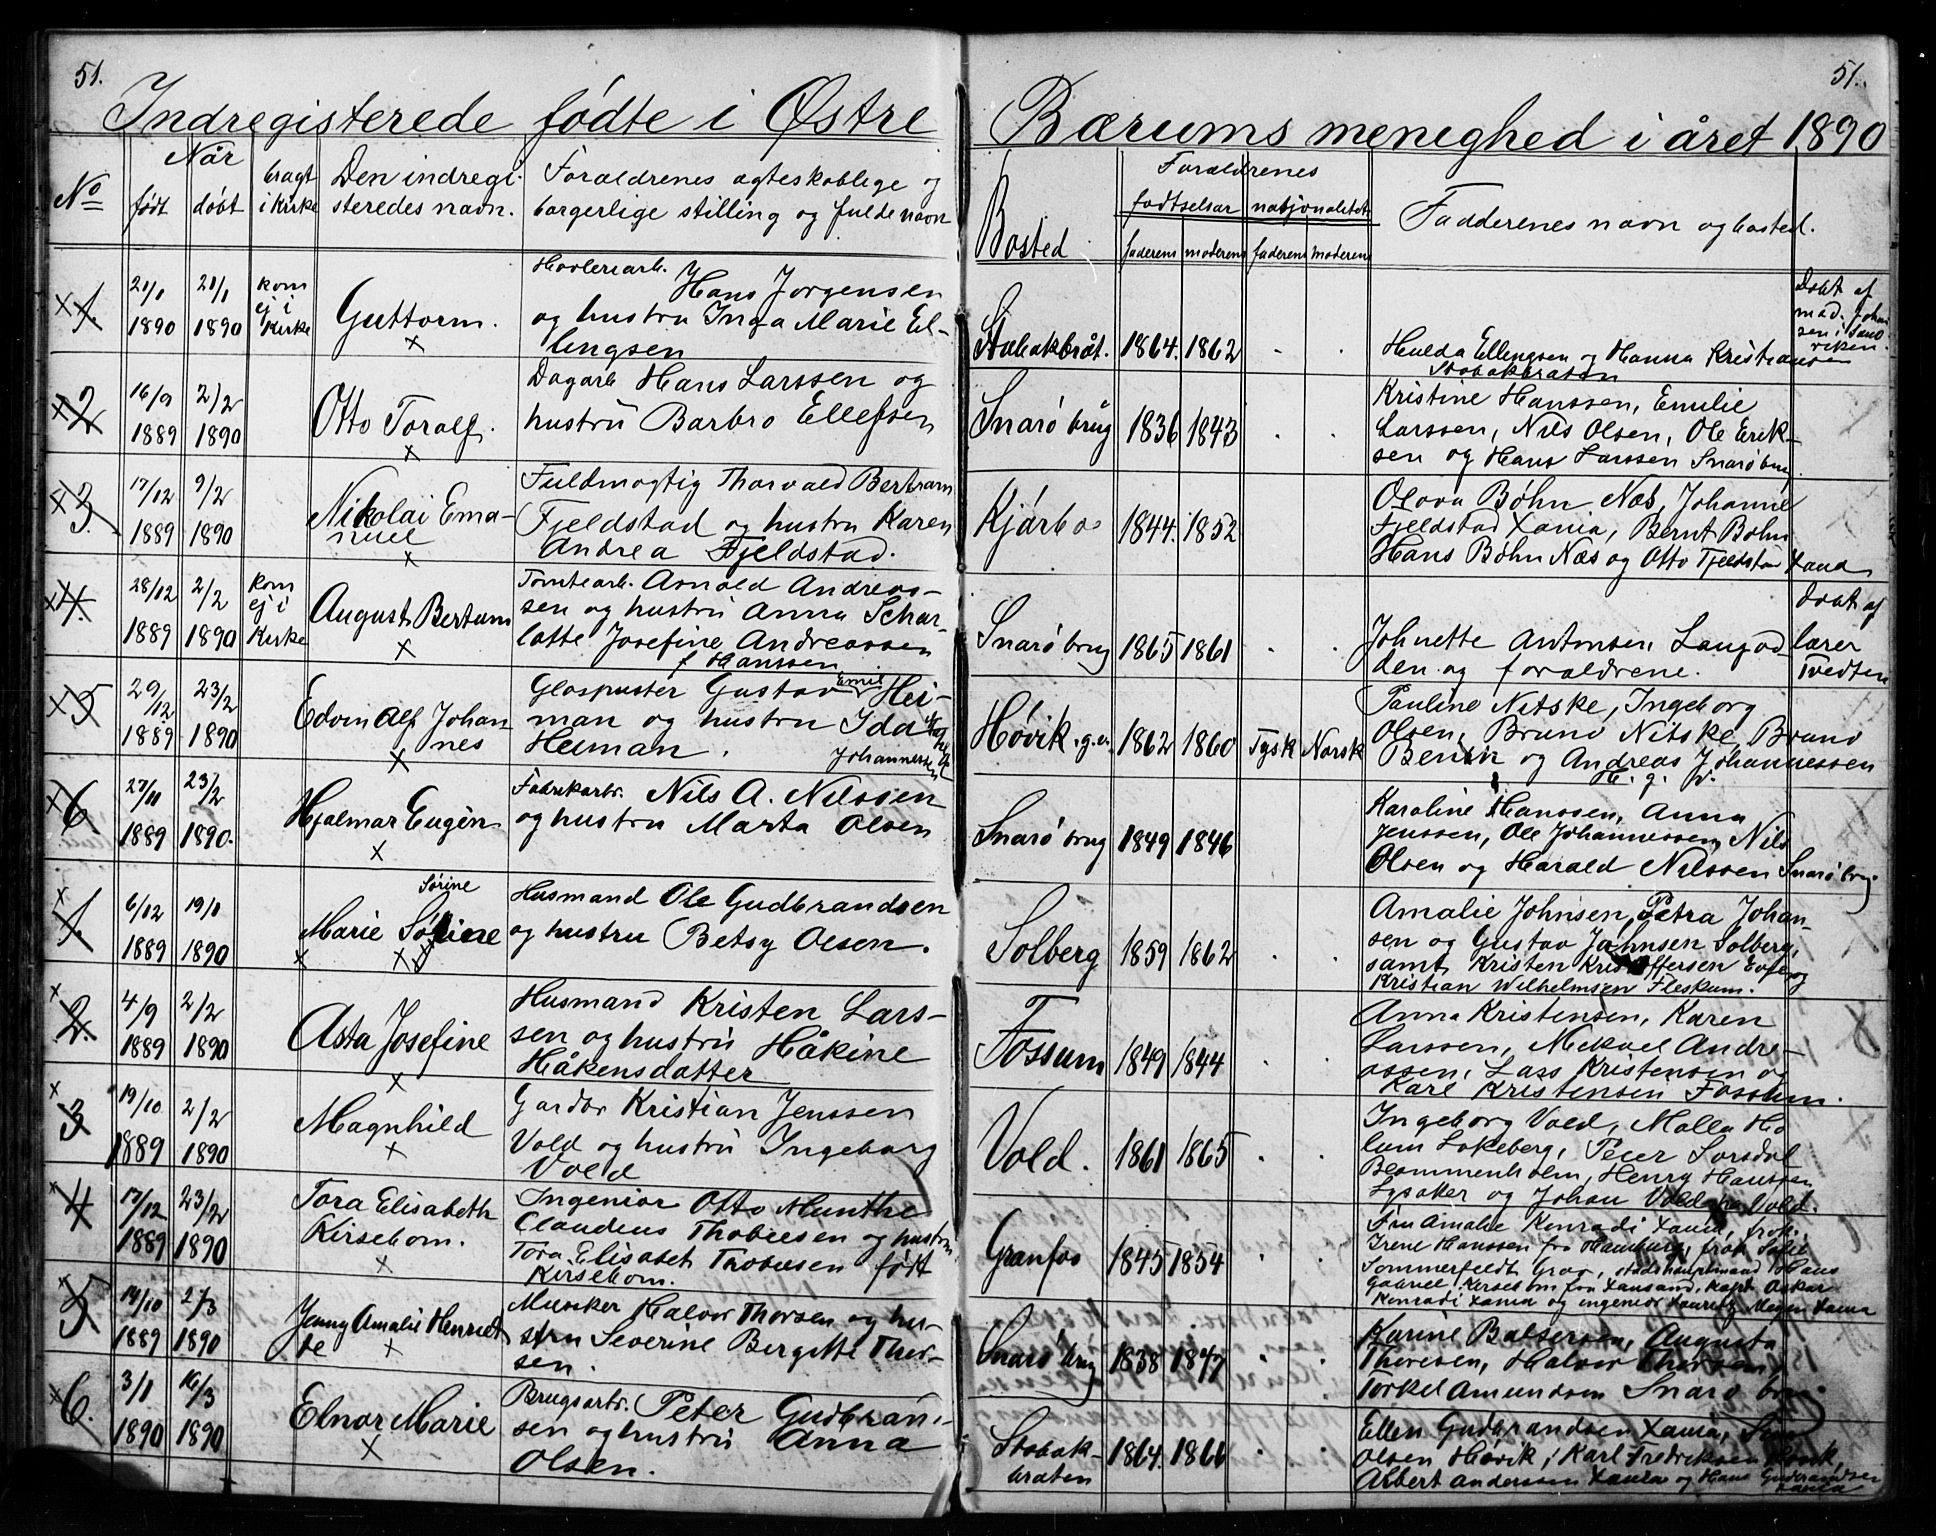 51.
51.
Indregisterede fødte i Østre Bærums menighed i året 1890
No
Når
født
døbt
bragt i Kirke
Den indregi-
steredes navn.
Forældrenes ægteskablige og
borgerlige stilling og fulde navn
Bosted
Forældrenes
fødtselsår
nasjonalitet
faderens
moderens
faderens
moderens
Fadderenes navn og bosted.
1.
21/1 1890
21/1 1890
kom ej i Kirke
Guttorm.
Hans Jørgensen
og hustru Inga Marie El-
lingsen
Stabækbråt.
1864.
1862
Hulda Ellingsen og Hanna Kristiansen
Stabækbråten
Døbt af
mad. Johan
sen i Sand
viken.
2
16/9 1889
2/2 1890
Otto Toralf.
Dagarb. Hans Larssen og
hustru Barbro Ellefsen
Snarø brug
1836
1843
Kristine Hanssen, Emilie
Larssen, Nils Olsen, Ole Erik-
sen og Hans Larssen Snarø brug
3.
17/12 1889
9/2 1890
Nikolai Ema-
nuel
Fuldmægtig Thorvald Bertram
Fjeldstad og hustru Karen
Andrea Fjeldstad.
Kjørbo
1844.
1852
Olava Bøhn Næs, Johanne
Fjeldstad Xania, Bernt Bøhn
Hans Bøhn Næs og Otto Fjeldstad
4.
28/12 1889
2/2 1890
kom ej i Kirke
August Bertram
Tomtearb. Arnold Andreas-
sen og hustru Anna Schar-
lotte Josefine Andreassen
f Hanssen
Snarø brug
1865
1861
Johnette Antonsen Langod-
den og forældrene.
Døbt af
lærer
Tvedten
5
29/12 1889
23/2 1890
Edvin Alf Johan-
nes
Glaspuster Gustav Emil Hei-
man og hustru Ida
Heiman.
Johannessen
Høvik.g.v.
1862
1860
Tysk
Norsk
Pauline Nitske, Ingeborg
Olsen, Bruno Nitske, Bruno
og Andreas Johannessen
H. g. v.
6.
27/11 1889
23/2 1890.
Hjalmar Eugèn
Fabrikarbr. Nils A. Nilssen
og hustru Marta Olsen
Snarø brug
1849
1846
Karoline Hanssen, Anna
Jenssen, Ole Johannessen, Nils
Olsen og Harald Nilssen Snarø brug.
1.
6/12 1889
19/1 1890
Sørine
Marie Sørine
Husmand Ole Gudbrandsen
og hustru Betsy Olsen.
Solberg
1859
1862
Amalie Johnsen, Petra Johan-
sen og Gustav Johnsen Solberg,
samt Kristen Kristoffersen Evje og
Kristian Wilhelmsen Fleskum.
2.
4/9 1889
2/2 1890
Asta Josefine
Husmand Kristen Lars-
sen og hustru Håkine
Håkensdatter
Fossum
1849
1844
Anna Kristensen, Karen
Larssen, Mikael Andre-
assen, Lars Kristensen og
Karl Kristensen Fossum.
3
19/10 1889
2/2 1890
Magnhild
Gårdbr Kristian Jenssen
Vold og hustru Ingeborg
Vold
Vold.
1861
1865
Ingeborg Vold, Malla Ho
lum Lokeberg, Peter Sørsdal
Blommenholm, Henry Hanssen
Lysaker og Johan Vold Vold.
4
17/12 1889
23/2 1890
Tora Elisabeth
Kirsebom.
Ingeniør Otto Munthe
Claudius Thobiesen og hustru
Tora Elisabet Thobiesen født
Kirsebom.
Granfos
1845
1854
Fru Amalie Konradi Xania, frøk.
Irene Hanssen fra Hamburg, frøk Sofie
Sommerfeldt Grav, stadshauptmand Hans
Gabriel Kirsebom fra Xansand, kapt Oskar
Konradi Xania og ingeniør Xania
5
14/10 1889
2/3 1890
Jenny Amalie Henriet-
te
Musiker Halvor Thorsen og hu-
stru Severine Bergitte Thor-
sen.
Snarø brug
1838
1847
Karine Baltersen, Augusta
Thoresen, Halvor Thorsen,
Torkel Amundsen Snarø brug
6.
3/1 1890
16/3 1890
Elnar Marie
Brugsarbr. Peter Gudbran-
sen og hustru Anna
Olsen.
Stabæk-
bråten
1864.
1866
Ellen Gudbrandsen Xania,
Olsen Høvik, Karl Fredriksen Høvik,
Albert Anderssen Xania og Hans Gudbrandsen
Xania